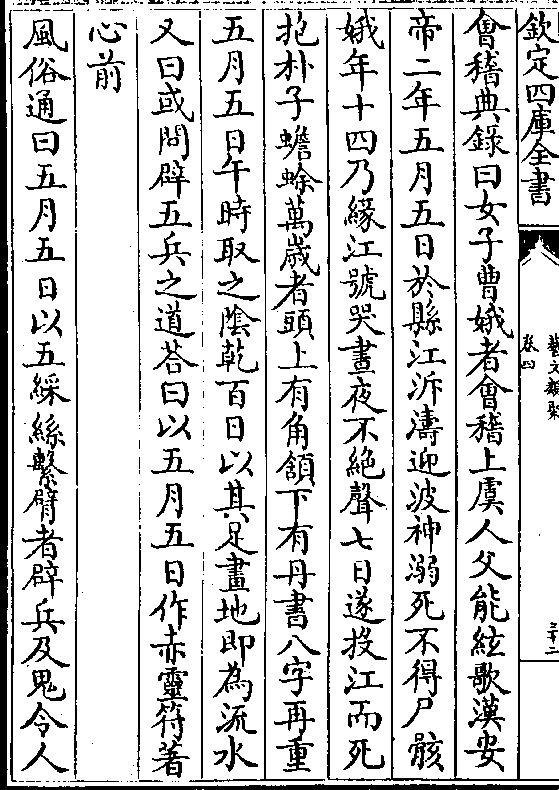 欽定四庫全書
藝文類聚
卷四
三十二
會稽典錄曰女子曹娥者會稽上虞人父能絃歌漢安
帝二年五月五日於縣江泝濤迎波神溺死不得尸骸
娥年十四乃緣江號哭晝夜不絕聲七日遂投江而死
抱朴子蟾蜍萬歲者頭上有角頷下有丹書八字再重
五月五日午時取之陰乾百日以其足畫地即為流水
又曰或問辟五兵之道荅曰以五月五日作赤靈符著
心前
風俗通曰五月五日以五綵絲繫臂者辟兵及鬼令人